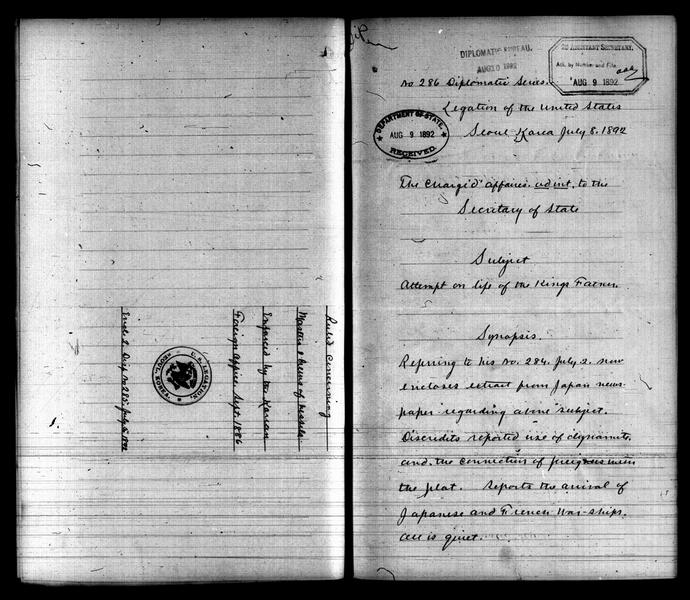 Rules Concerning
Masters & Crews of Vessels
Enforced by the Korean
Foreign Office Sept. 1886
Encl. 2 Dip. No. 285 July 5, 1892
U.S. LEGATION.
SEOUL, KOREA.
DIPLOMATIC BUREAU.
AUG 10 1892
2D ASSISTANT SECRETARY,
Ack. by Number and File
AUG 9 1892
No 286 Diplomatic Series.
Legation of the United States
DEPARTMENT OF STATE.
AUG 9 1892
RECEIVED.
Seoul Korea July 8. 1892
The Chargé d'affaires. ad int. to the
Secretary of State
Subject
Attempt on life of the Kings Father.
Synopsis.
Referring to his No. 284. July 2. now
encloses extract from Japan news-
paper regarding above subject.
Discredits reported use of dynamite.
and the connection of foreigners with
the plot. Reports the arrival of
Japanese and French War-ships.
All is quiet.